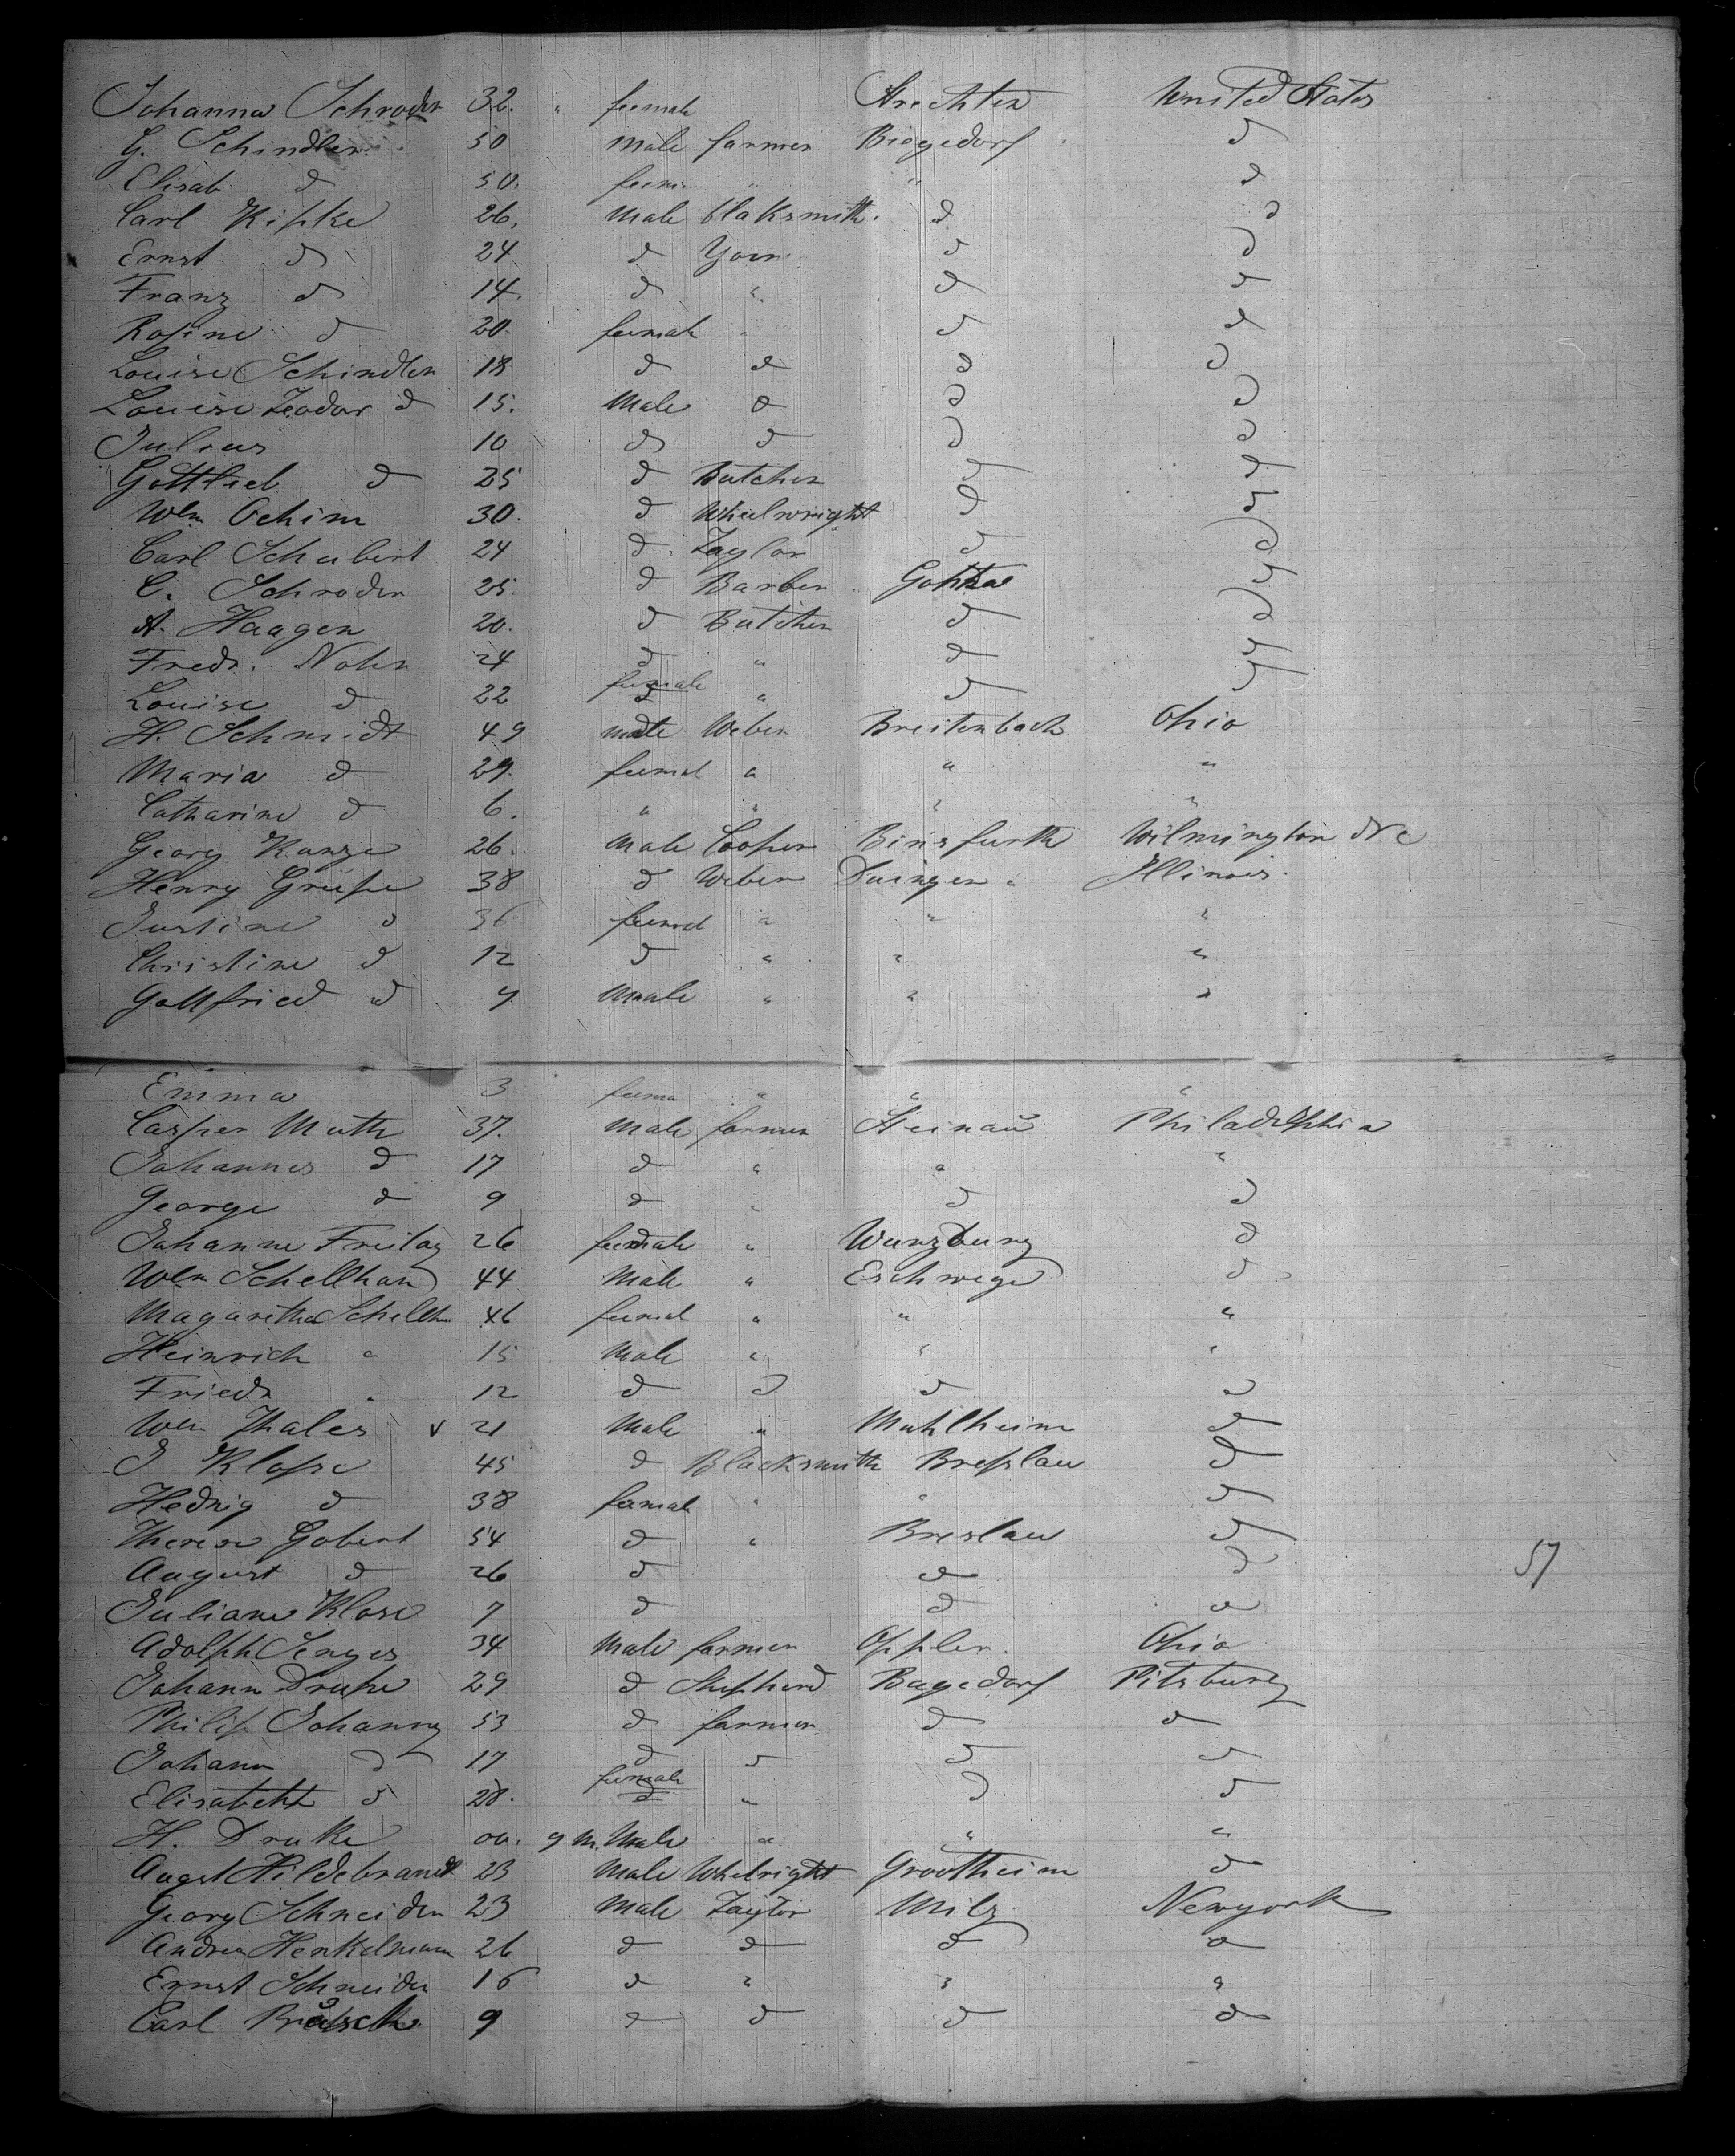 Johanna Schroder 32. " feemale Strechten United States
G. Schindler 50 male farmer Biogedorf d
Elisab d 50. feem. " " d
Carl Kipke 26, male blaksmith. d d
Ernst d 24 d d d
Franz d 14. d " d d
Rosine d 20. feemale " d d
Louise Schindler 18 d d d d
Louise Teodor d 15. Male d d d
Julius 10 d d d d
Gottlieb d 25 d Butcher d d
Wlm Ochim 30. d Wheelwright d d
Carl Schubert 24 d. Taylor d d
C. Schroder 25 d Barber Gohtza d
A. Haagen 20. d Butcher d d
Fredr. Nohr 24 d " d d
Louise d 22 female " d d
H. Schmidt 49 male Weber Breitenbach Ohio
Maria d 29. feemal " " "
Catharine d 6. " " " "
Georg Kunze 26. male Cooper Binsfurth Wilmington N C
Henry Grupe 38 d Weber Duingen " Illinois.
Justine d 36 feemal " " "
Christine d 12 d " " "
Gottfried d 9 Male " " "
Emma 3 feema " " "
Casper Muth 37. Male farmer Steinau Philadelphia
Johannes d 17 d " " "
George d 9 d " d d
Johanne Freitag 26 feemale " Wurzburg d
Wlm Schellhan 44 Male " Eschwege d
Magaretha Schellhn 46 feemal " " "
Heinrich " 15 Male " " "
Friedr " 12 d d d d
Wlm Thales v 21 Male " Muhlheim d
J Klose 45 d Blacksmith Breslau d
Hedwig d 38 feemale " " d
Therese Gobert 54 d " Breslau d
August d 26 d d d 57
Juliane Klose 7 d d d
Adolph Senges 34 Male farmer Oppler. Ohio
Johann Drupe 29 d Shepherd Bagedorf Pitsburg
Philip Johanny 53 d farmer d d
Johann d 17 d d d d
Elisabeht d 28. female " d d
H. Druke 00. 9 m. Male " " "
Augst Hildebrandt 23 Male Whelright Grootheim d
Georg Schneider 23 Male Taylor Milz Newyork
Andrea Henkelmann 26 d d d d
Ernst Schneider 16 d " " "
Carl 9 d d d d